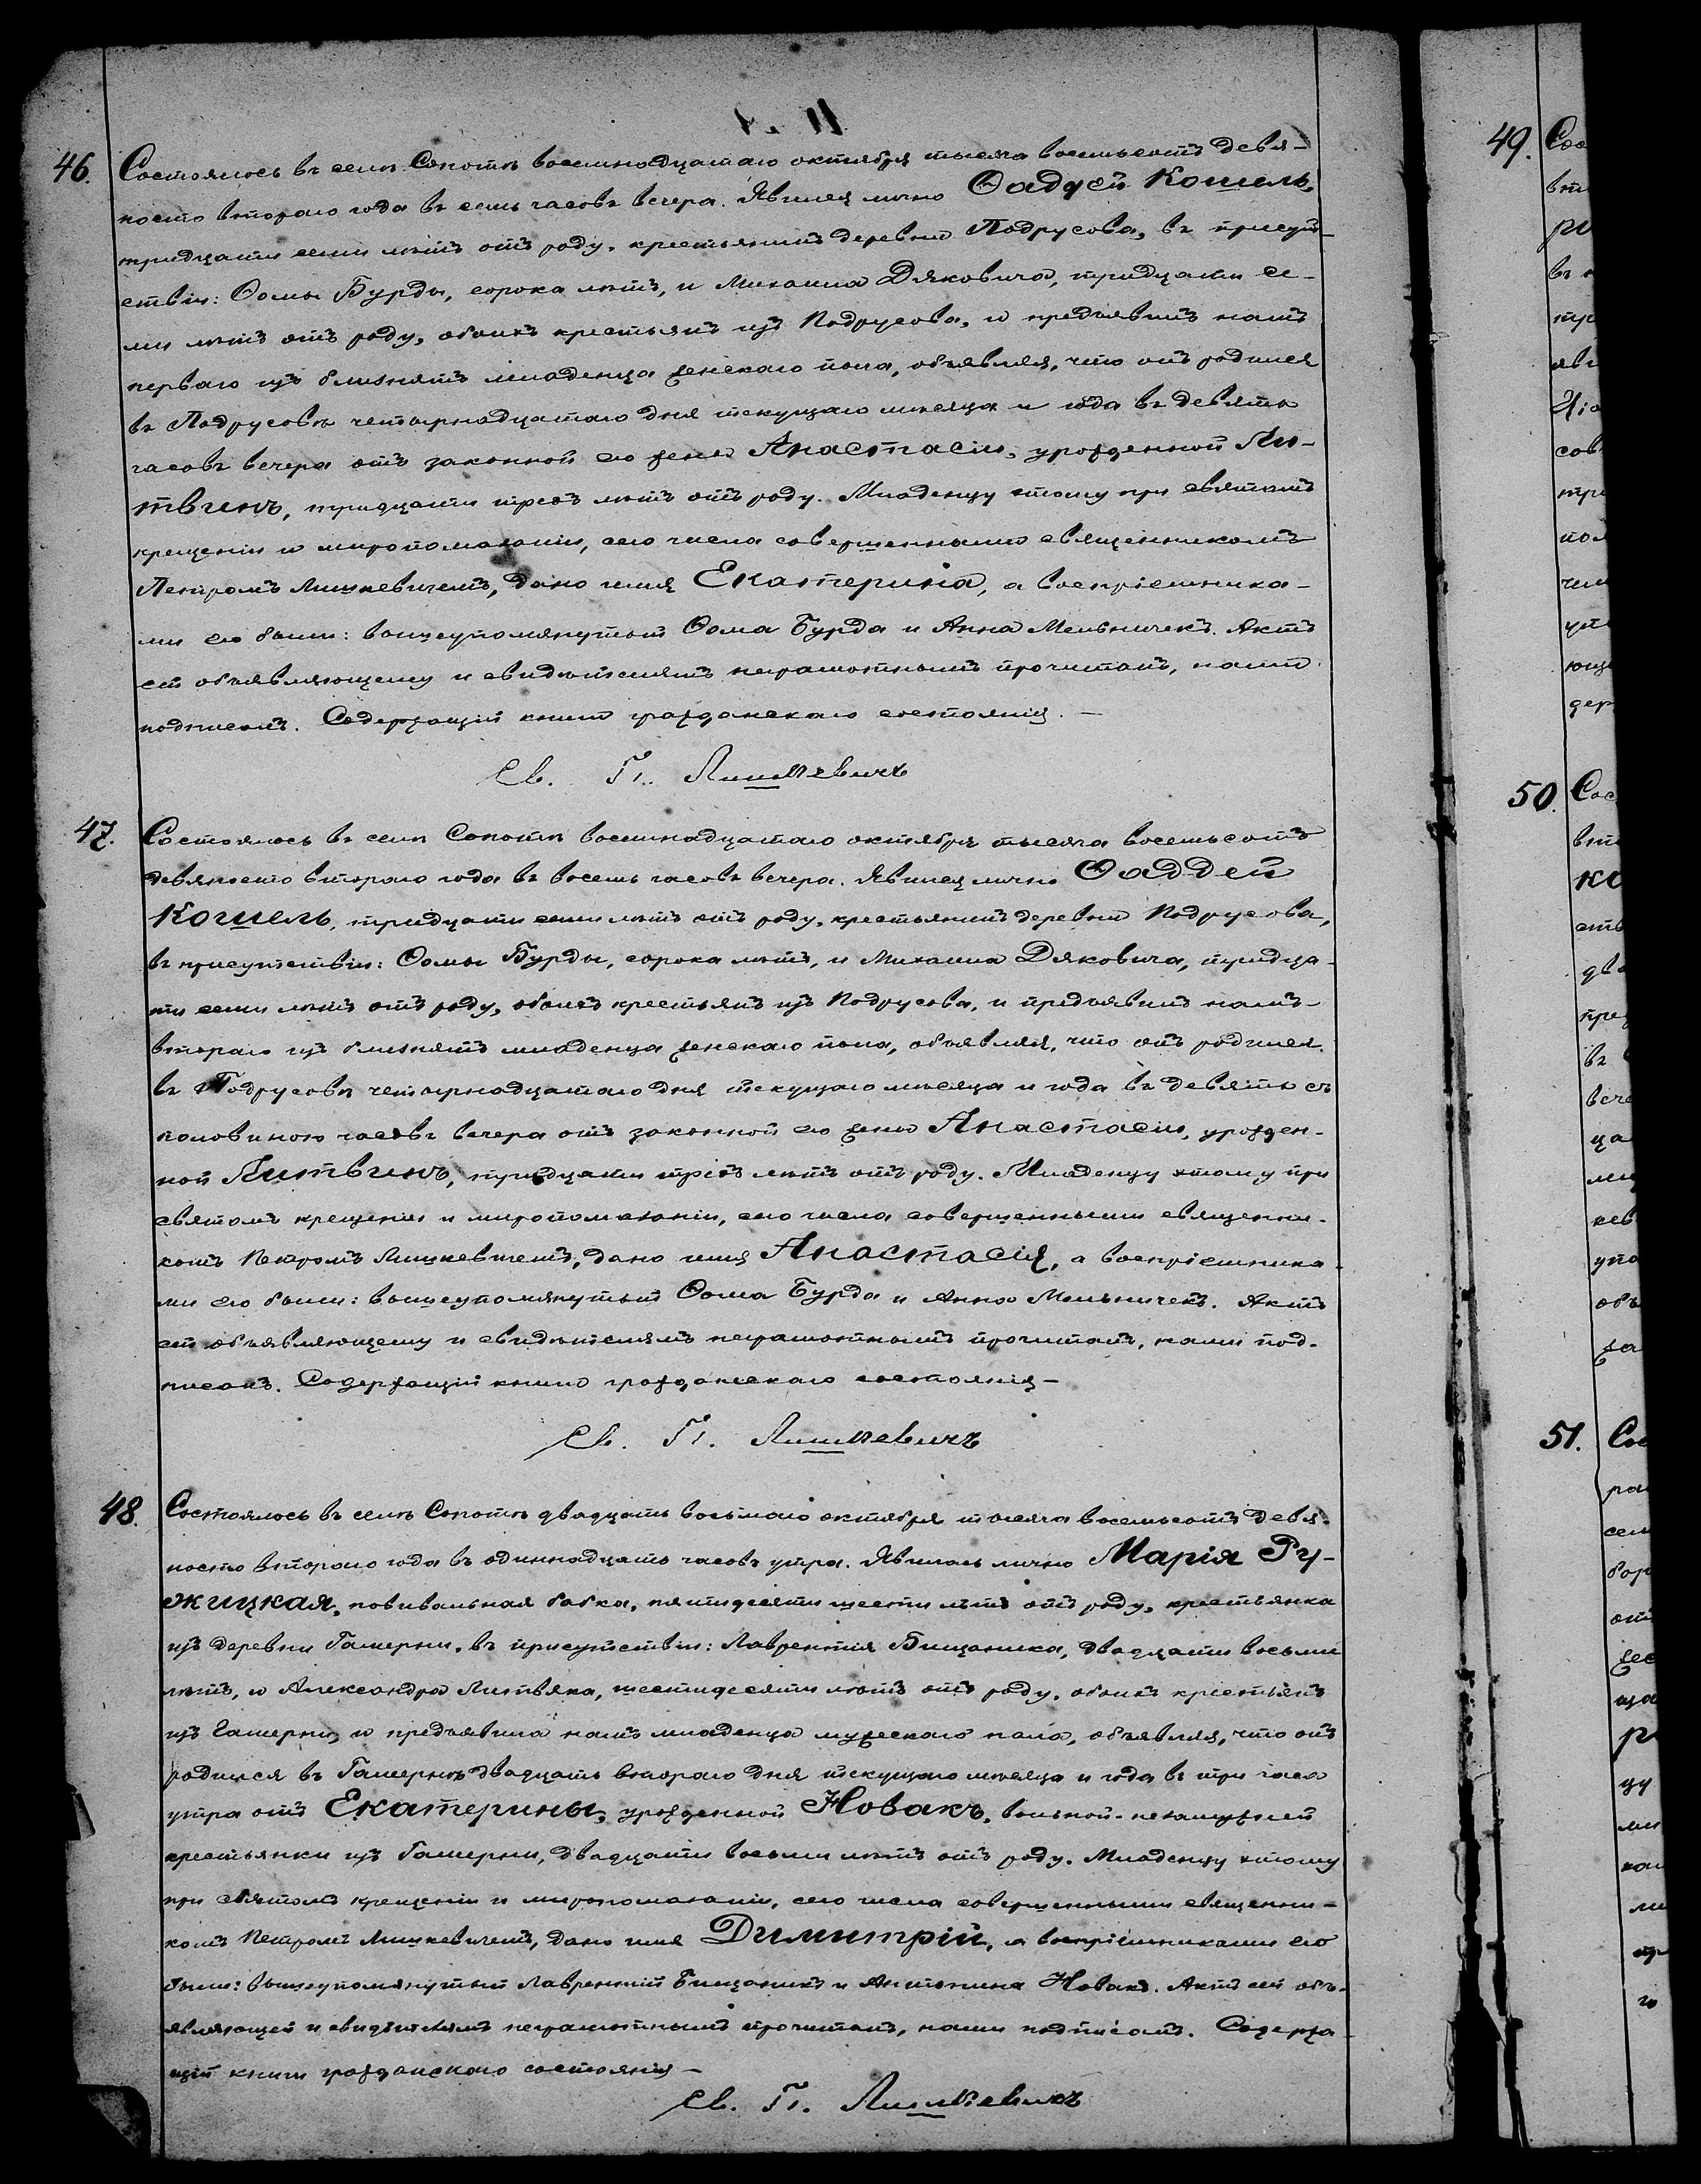 46. Состоялось въ селѣ Сопотѣ восемнадцатаго октября тысяча восемьсотъ девя-
носто втораго года въ семь часовъ вечера. Явился лично Ѳаддей Кошель,
тридцати семи лѣтъ отъ роду, крестьянинъ деревни Подрусова, въ присут-
ствіи: Ѳомы Бурды, сорока лѣтъ, и Михаила Дяковича, тридцати се-
ми лѣтъ отъ роду, обоихъ крестьянъ изъ Подрусова, и предъявилъ намъ
перваго изъ близнятъ младенца женскаго пола, объявляя, что онъ родился
въ Подрусовѣ четырнадцатаго дня текущаго мѣсяца и года въ девять
часовъ вечера отъ законной его жены Анастасіи, урожденной Ли-
твинъ, тридцати трехъ лѣтъ отъ роду. Младенцу этому при святомъ
крещеніи и миропомазаніи, сего числа совершенными священникомъ
Петромъ Лишкевичемъ, дано имя Екатерина, а воспріемника-
ми его были: вышеупомянутый Ѳома Бурда и Анна Мельничекъ. Актъ
сей объявляющему и свидѣтелямъ неграмотнымъ прочитанъ, нами
подписанъ. Содержащій книги гражданскаго состоянія. —
Св. П. Лишкевичъ
47. Состоялось въ селѣ Сопотѣ восемнадцатаго октября тысяча восемьсотъ
девяносто втораго года въ восемь часовъ вечера. Явился лично Ѳаддей
Кошель, тридцати семи лѣтъ отъ роду, крестьянинъ деревни Подрусова,
въ присутствіи: Ѳомы Бурды, сорока лѣтъ, и Михаила Дяковича, тридца-
ти семи лѣтъ отъ роду, обоихъ крестьянъ изъ Подрусова, и предъявилъ намъ
втораго изъ близнятъ младенца женскаго пола, объявляя, что онъ родился
въ Подрусовѣ четырнадцатаго дня текущаго мѣсяца и года въ девять съ
половиною часовъ вечера отъ законной его жены Анастасіи, урожден-
ной Литвинъ, тридцати трехъ лѣтъ отъ роду. Младенцу этому при
святомъ крещеніи и миропомазаніи, сего числа совершенными священни-
комъ Петромъ Лишкевичемъ, дано имя Анастасія, а воспріемника-
ми его были: вышеупомянутый Ѳома Бурда и Анна Мельничекъ. Актъ
сей объявляющему и свидѣтелямъ неграмотнымъ прочитанъ, нами под-
писанъ. Содержащій книги гражданскаго состоянія —
Св. П. Лишкевичъ
48. Состоялось въ селѣ Сопотѣ двадцать восьмаго октября тысяча восемьсотъ девя-
носто втораго года въ одиннадцать часовъ утра. Явилась лично Марія Ру-
жицкая, повивальная бабка, пятидесяти шести лѣтъ отъ роду, крестьянка
изъ деревни Гамерни, въ присутствіи: Лаврентія Бищаника, двадцати восьми
лѣтъ, и Александра Литвяка, шестидесяти лѣтъ отъ роду, обоихъ крестьянъ
изъ Гамерни, и предъявила намъ младенца мужескаго пола, объявляя, что онъ
родился въ Гамернѣ двадцать втораго дня текущаго мѣсяца и года въ три часа
утра отъ Екатерины, урожденной Новакъ, вольной-незамужней
крестьянки изъ Гамерни, двадцати восьми лѣтъ отъ роду. Младенцу этому
при святомъ крещеніи и миропомазаніи, сего числа совершенными священни-
комъ Петромъ Лишкевичемъ, дано имя Димитрій, а воспріемниками его
были: вышеупомянутый Лаврентій Бищаникъ и Антонина Новакъ. Актъ сей объ-
являющей и свидѣтелямъ неграмотнымъ прочитанъ, нами подписанъ. Содержа-
щій книги гражданскаго состоянія —
Св. П. Лишкевичъ
49.
50.
51.